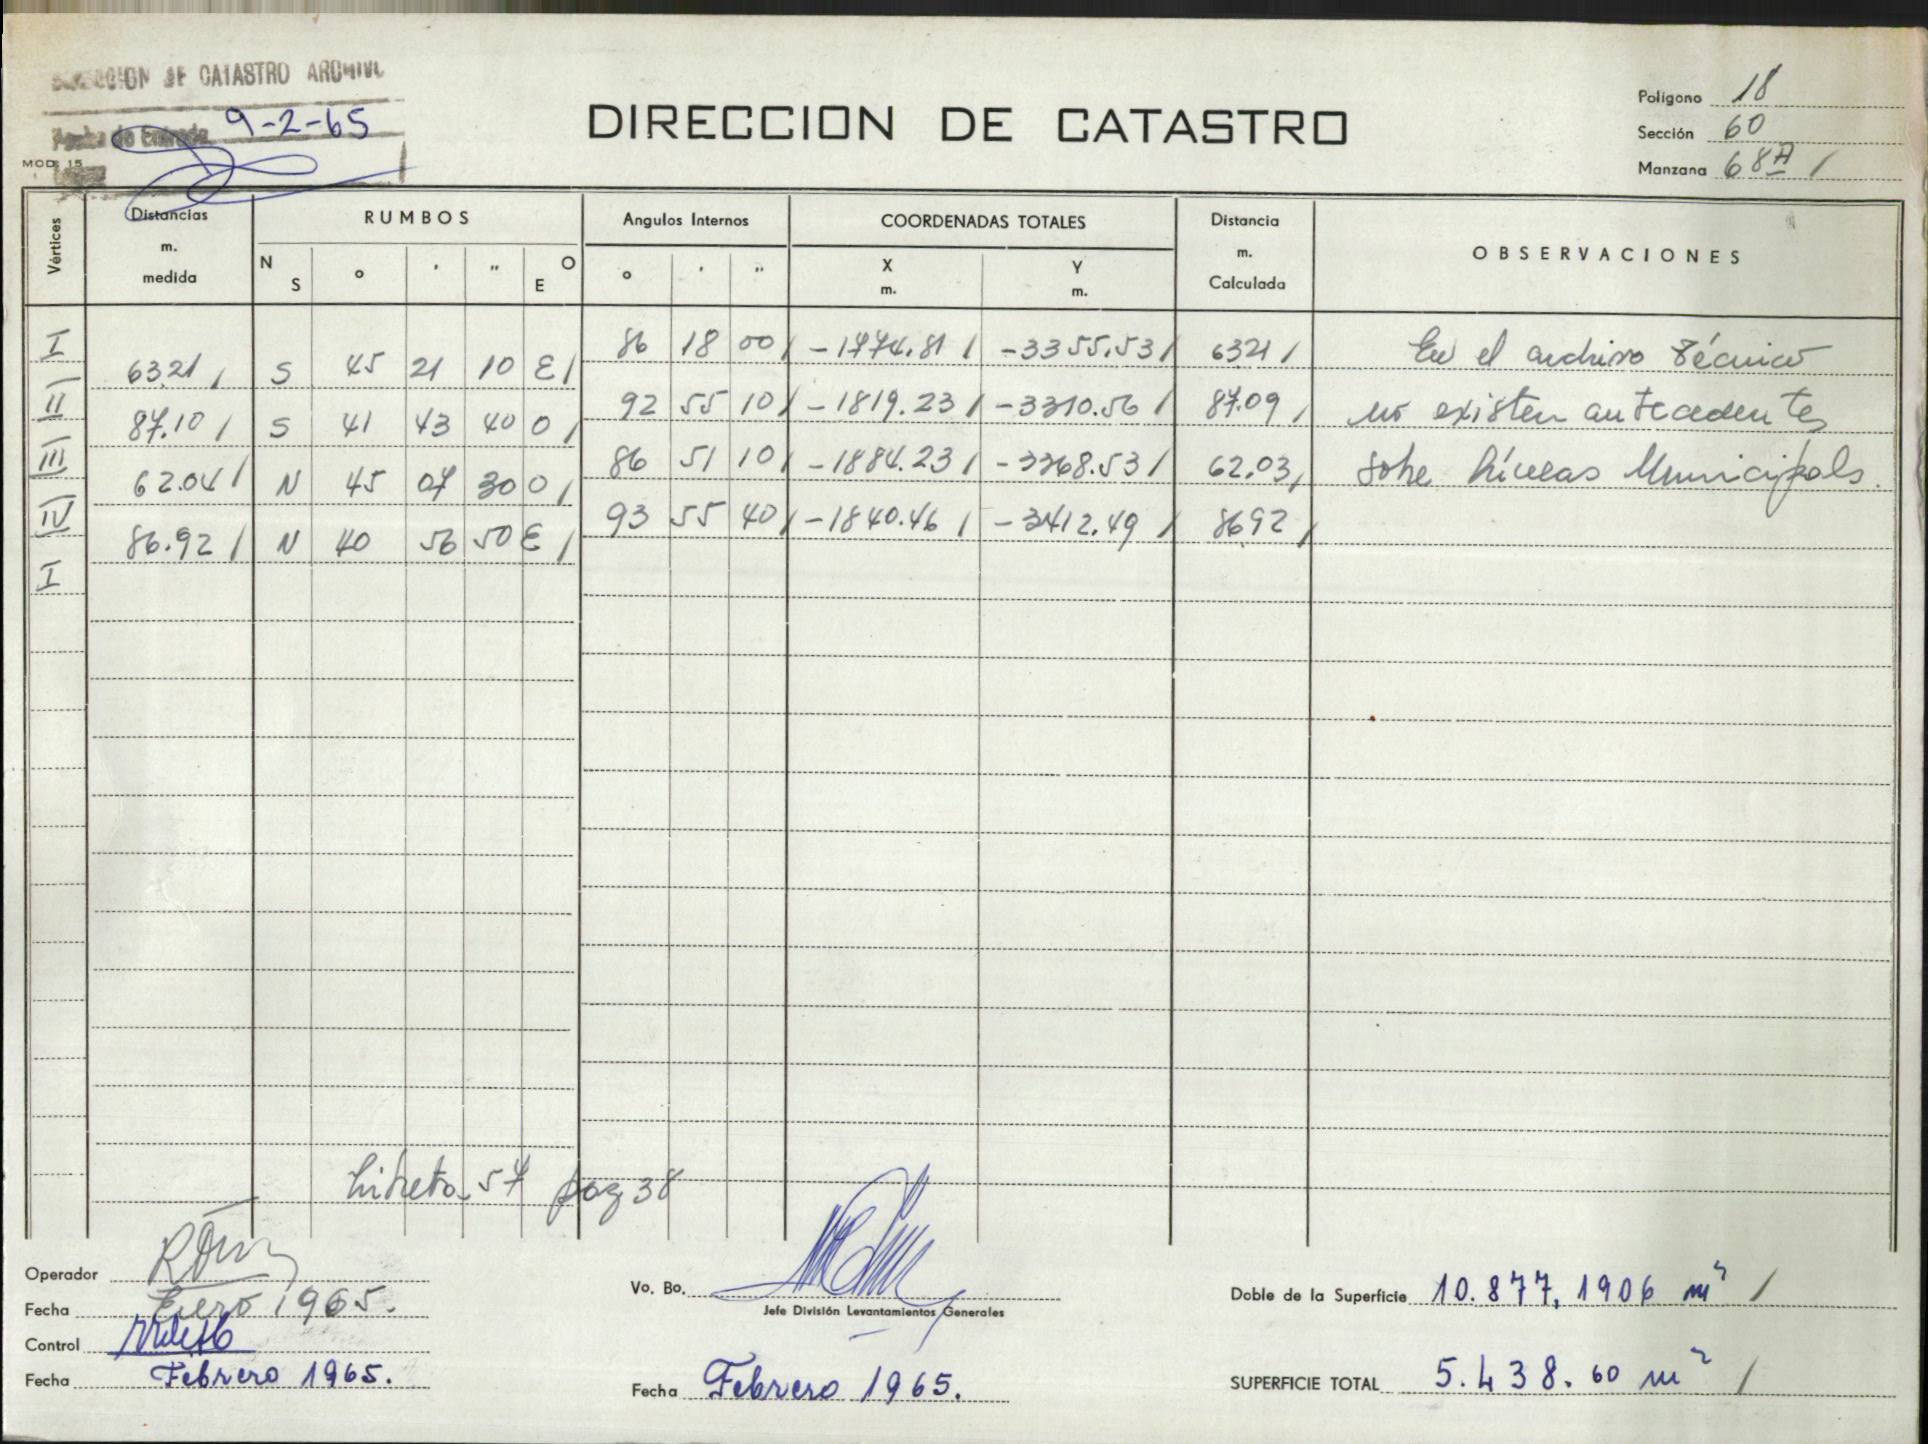 DIRECCION DE CATASTRO ARCHIVO
Fecha de Entrada 9-2-65
MOD. 15
DIRECCION DE CATASTRO
Polígono 18
Sección 60
Manzana 68 A /
Vértices
Distancias m. medida
RUMBOS
N S ° ' " O E
Angulos Internos
° ' "
COORDENADAS TOTALES
X m. Y m.
Distancia m. Calculada
OBSERVACIONES
I 86 18 00 / -1774.81 / -3355.53 / 63.21 / En el archivo técnico
63.21 / S 45 21 10 E /
II 92 55 10 / -1819.23 / -3310.56 / 87.09 / no existen antecedentes
87.10 / S 41 43 40 O /
III 86 51 10 / -1884.23 / -3368.53 / 62.03 / sobre Líneas Municipals.
62.04 / N 45 07 30 O /
IV 93 55 40 / -1840.46 / -3412.49 / 86.92 /
86.92 / N 40 56 50 E /
I
Libreta 57 pag 38
Operador
Fecha Enero 1965.
Control
Fecha Febrero 1965.
Vo. Bo.
Jefe División Levantamientos Generales
Fecha Febrero 1965.
Doble de la Superficie 10.877,1906 m² /
SUPERFICIE TOTAL 5.438.60 m² /